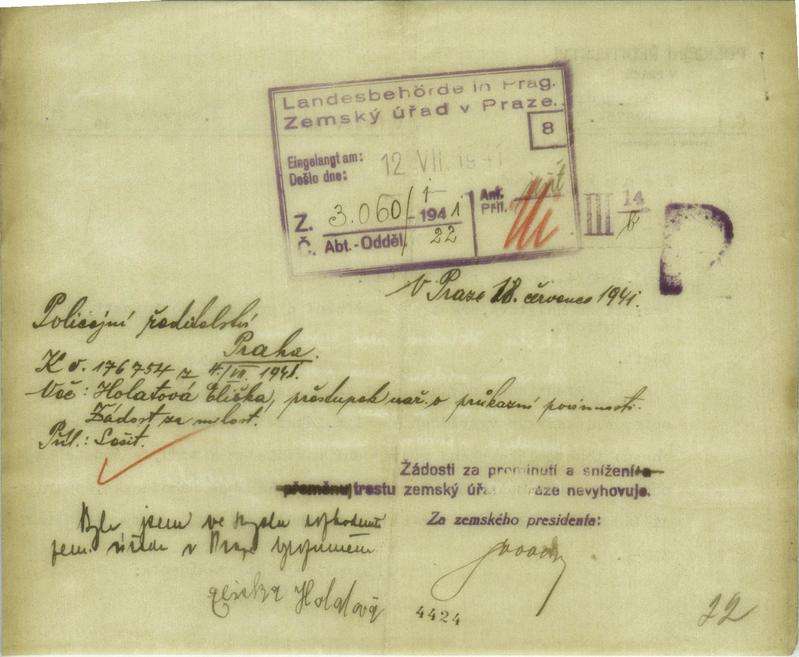 Landesbehörde in Prag.
Zemský úřad v Praze.
8
Eingelangt am:
Došlo dne:
12 VII. 1941
Z. 3.060/1-1941
Č. Abt.-Odděl. 22
Ant.
Příl.
III 14
V Praze 18. července 1941.
Policejní ředitelství
Praha.
K č. 176754 z 4./VII. 1941.
Věc: Holatová Eliška, přestupek nař. o průkazní povinnosti.
Žádost za milost.
Příl.: Sešit.
Žádosti za prominutí a snížení a
přeměnu trestu zemský úřad v Praze nevyhovuje.
Za zemského presidenta:
Byla jsem ve smyslu rozhodnutí
zem. úřadu v Praze vyrozuměna
Eliška Holatová
4424
22